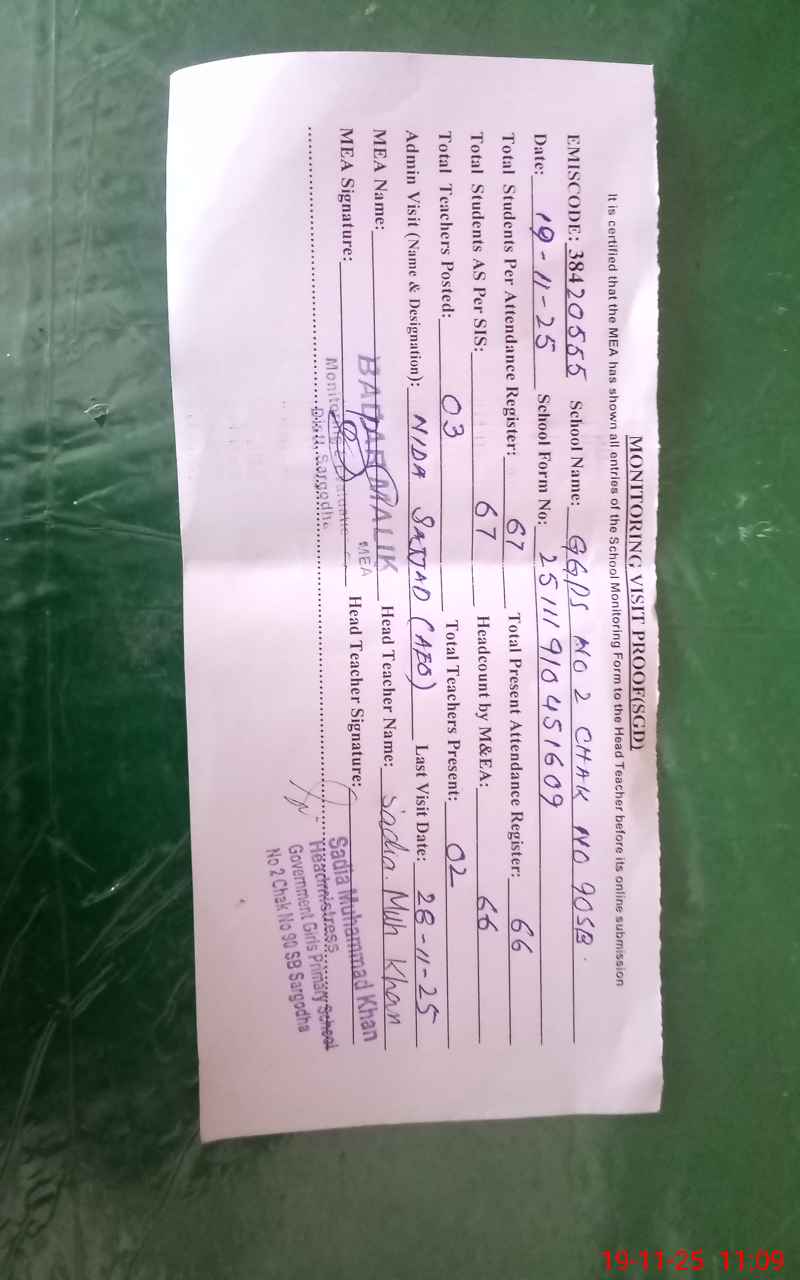 MONITORING VISIT PROOF(SGD)
It is certified that the MEA has shown all entries of the School Monitoring Form to the Head Teacher before its online submission
EMISCODE: 38420555 School Name: GGPS NO 2 CHAK NO 90SB.
Date: 19-11-25 School Form No: 25111910451609
Total Students Per Attendance Register: 67 Total Present Attendance Register: 66
Total Students AS Per SIS: 67 Headcount by M&EA: 66
Total Teachers Posted: 03 Total Teachers Present: 02
Admin Visit (Name & Designation): NIDA SAJJAD (AEO) Last Visit Date: 28-11-25
MEA Name: MALIK Head Teacher Name: Sadia Muh Khan
MEA
MEA Signature: Head Teacher Signature:
Distt. Sargodha
Sadia Muhammad Khan
Headmistress
Government Girls Primary School
No 2 Chak No 90 SB Sargodha
19-11-25 11:09